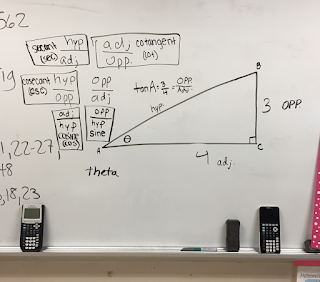 562
secant (sec) hyp/adj
adj/opp. cotangent (cot)
19
cosecant (csc) hyp/opp
opp/adj
tan A = 3/4 = opp./adj.
B
hyp.
3 opp.
adj/hyp cosine (cos)
opp/hyp sine
1, 22-27,
48
A θ
C
4 adj.
theta
3, 18, 23